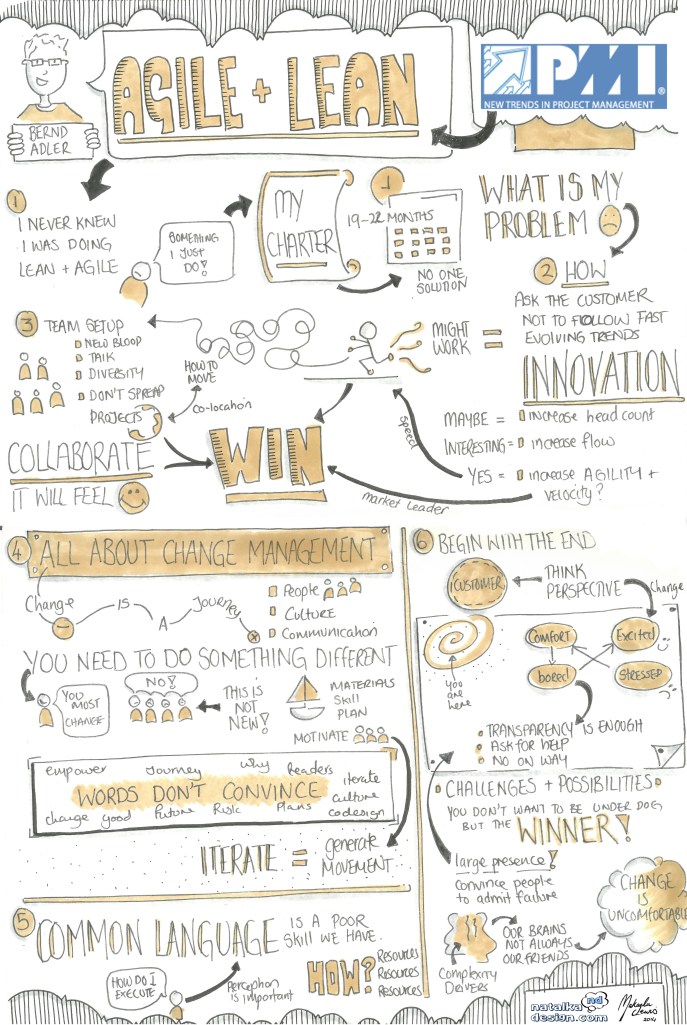 BERND
ADLER
AGILE + LEAN
PMI
NEW TRENDS IN PROJECT MANAGEMENT
1
I NEVER KNEW
I WAS DOING
LEAN + AGILE
SOMETHING
I JUST
DO!
MY
CHARTER
19-22 MONTHS
NO ONE
SOLUTION
WHAT IS MY
PROBLEM
2 HOW
ASK THE CUSTOMER
NOT TO FOLLOW FAST
EVOLVING TRENDS
3 TEAM SETUP
NEW BLOOD
TALK
DIVERSITY
DON'T SPREAD
PROJECTS
HOW TO
MOVE
Co-location
MIGHT
WORK =
INNOVATION
MAYBE = increase head count
INTERESTING = increase flow
YES = increase AGILITY +
velocity?
speed
market leader
COLLABORATE
IT WILL FEEL
WIN
4 ALL ABOUT CHANGE MANAGEMENT
Change IS A Journey
People
Culture
Communication
YOU NEED TO DO SOMETHING DIFFERENT
YOU
MOST
CHANGE
NO!
THIS IS
NOT
NEW!
MATERIALS
Skill
PLAN
MOTIVATE
empower Journey why Readers
iterate
WORDS DON'T CONVINCE
culture
change good Future Risk Plans codesign
ITERATE = generate
MOVEMENT
5 COMMON LANGUAGE
IS A POOR
Skill WE HAVE.
HOW DO I
EXECUTE
Perception
is important
HOW?
Resources
Resources
Resources
6 BEGIN WITH THE END
CUSTOMER
THINK
PERSPECTIVE
Change
you
are
here
COMFORT
Excited
bored
STRESSED
TRANSPARENCY IS ENOUGH
ASK FOR HELP
NO ON WAY
CHALLENGES + POSSIBILITIES
YOU DON'T WANT TO BE UNDER DOG
BUT THE WINNER!
large presence!
convince people
to admit failure
Complexity
Drivers
OUR BRAINS
NOT ALWAYS
OUR FRIENDS
CHANGE
IS
UNCOMFORTABLE
natalka nd
design.com
2014